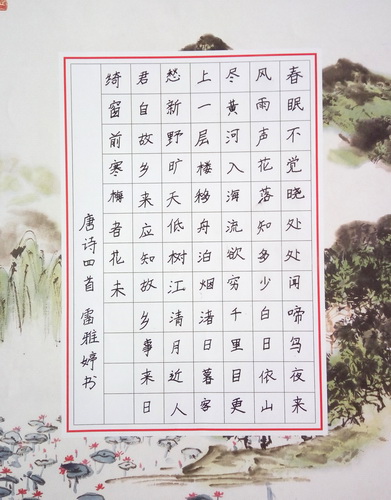 春眠不觉晓处处闻啼鸟夜来
风雨声花落知多少白日依山
尽黄河入海流欲穷千里目更
上一层楼移舟泊烟渚日暮客
愁新野旷天低树江清月近人
君自故乡来应知故乡事来日
绮窗前寒梅者花未
唐诗四首 雷雅婷书